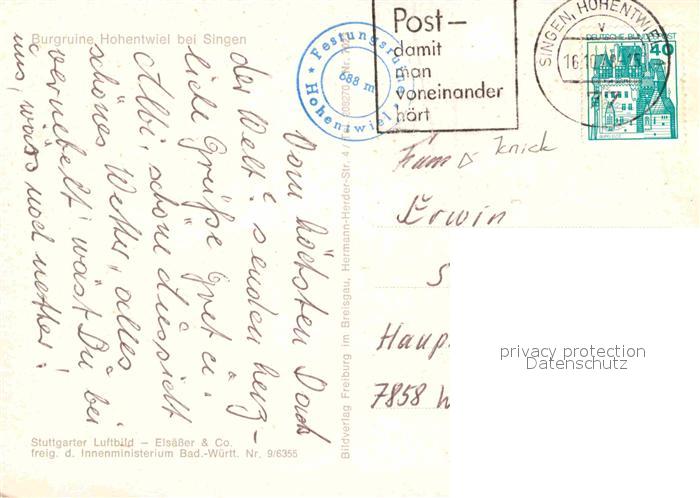 Burgruine Hohentwiel bei Singen
Vom höchsten Dach
der Welt! senden herz-
liche Grüße Gret u.
Albi, schöne Aussicht
schönes Wetter, alles
vernebelt, wäst Du bei
uns, wärs noch netter!
Stuttgarter Luftbild – Elsäßer & Co.
freig. d. Innenministerium Bad.-Württ. Nr. 9/6355
Bildverlag Freiburg im Breisgau, Hermann-Herder-Str. 4 /
Festungsruine
Hohentwiel
688 m
Post–
damit
man
voneinander
hört
SINGEN, HOHENTWIEL
v
16.10.
DEUTSCHE BUNDESPOST
40
Fam
Knick
Erwin
S
Haup
7858 W
privacy protection
Datenschutz